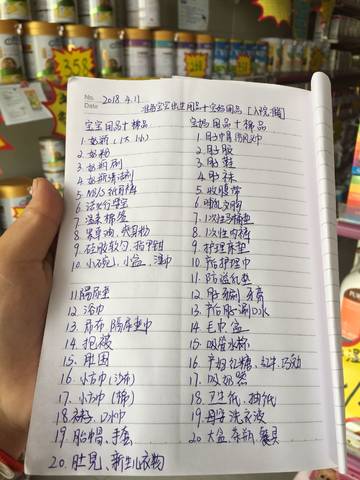 No.
Date
2018.4.11
准备宝宝出生用品+宝妈用品 [入院待产]
宝宝用品+棉品
1. 奶瓶 (1大1小)
2. 奶粉
3. 奶瓶刷
4. 奶瓶清洁剂
5. NB/S 纸尿裤
6. 婴儿湿巾
7. 湿米棉签
8. 爽身油、爽身粉
9. 硅胶软勺、指甲钳
10. 小碗、小盆、湿巾
11. 隔尿垫
12. 浴巾
13. 尿布 隔尿垫巾
14. 抱被
15. 肚围
16. 小方巾 (纱布)
17. 小方巾 (棉)
18. 衣服、口水巾
19. 胎帽、手套
20. 肚兜、新生儿衣物
宝妈用品+棉品
1. 月子巾
2. 月子服
3. 月子鞋
4. 月子袜
5. 收腹带
6. 哺乳文胸
7. 一次性马桶垫
8. 一次性内裤
9. 护理床垫
10. 产后护理巾
11. 防溢乳垫
12. 月子牙刷 牙膏
13. 产后月子漱口水
14. 毛巾 盆
15. 吸管水杯
16. 产妇红糖、红牛、巧克力
17. 吸奶器
18. 卫生纸、抽纸
19. 母婴洗衣液
20. 大盆、衣架、餐具
358